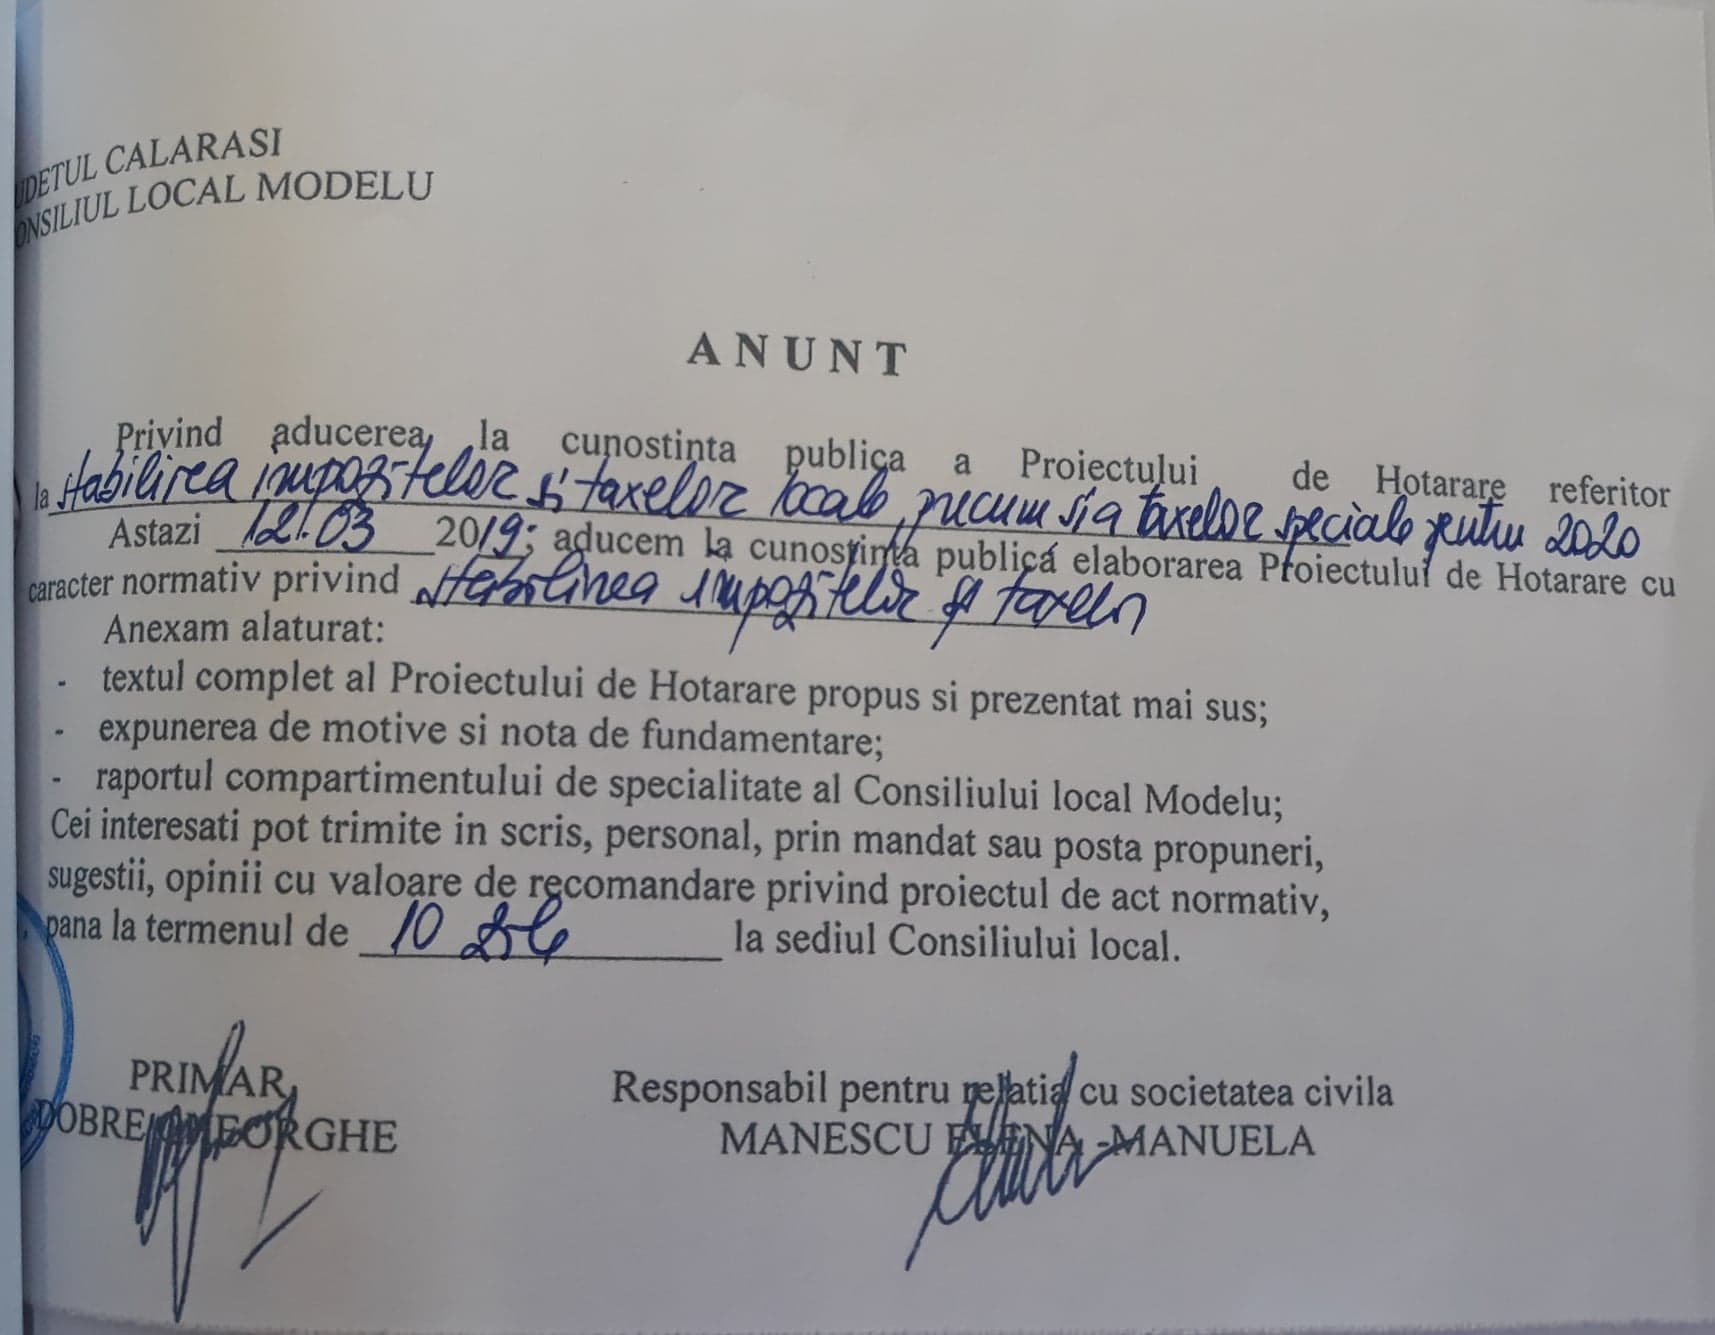 UDETUL CALARASI
ONSILIUL LOCAL MODELU
ANUNT
Privind aducerea la cunostinta publica a Proiectului de Hotarare referitor
la stabilirea impozitelor si taxelor locale, precum si a taxelor speciale pentru 2020
Astazi 12.03 2019; aducem la cunostinta publica elaborarea Proiectului de Hotarare cu
caracter normativ privind stabilirea impozitelor si taxelor
Anexam alaturat:
- textul complet al Proiectului de Hotarare propus si prezentat mai sus;
- expunerea de motive si nota de fundamentare;
- raportul compartimentului de specialitate al Consiliului local Modelu;
Cei interesati pot trimite in scris, personal, prin mandat sau posta propuneri,
sugestii, opinii cu valoare de recomandare privind proiectul de act normativ,
pana la termenul de 10 zile la sediul Consiliului local.
PRIMAR,
DOBRE GHEORGHE
Responsabil pentru relatia cu societatea civila
MANESCU ELENA -MANUELA